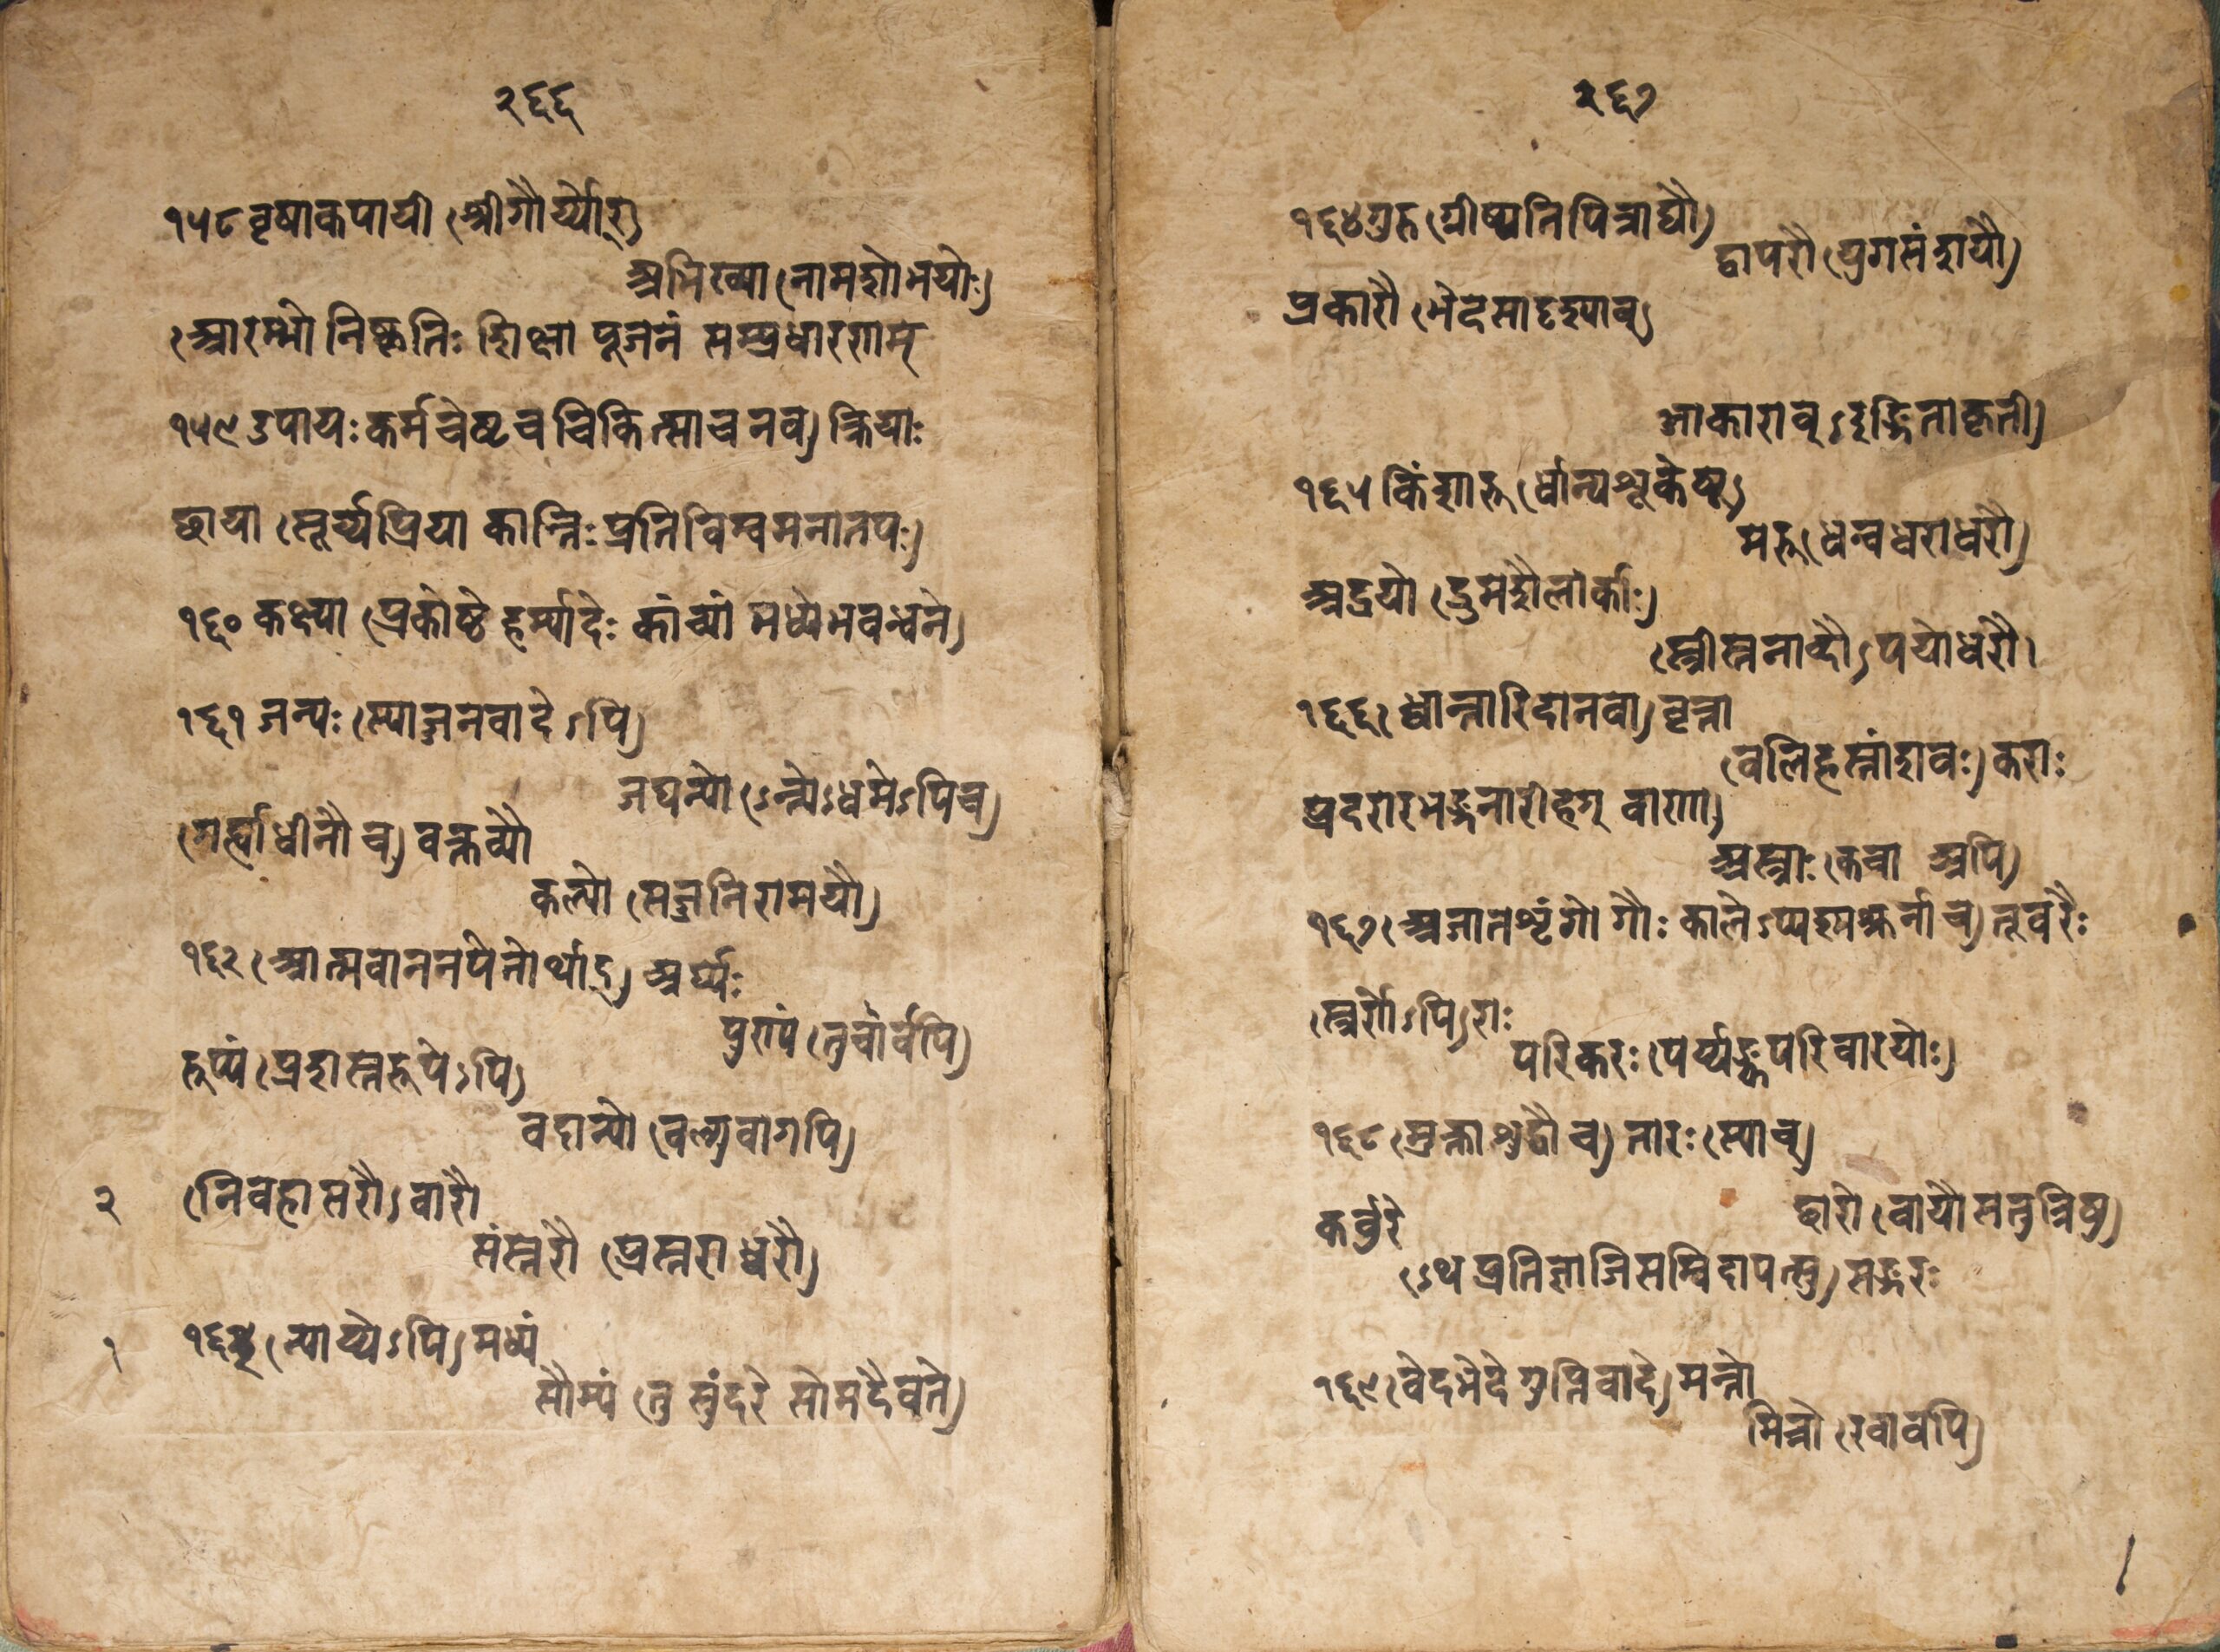 २६६
१५८ वृषाकपायी (श्रीगौर्य्योर्)
अभिख्या (नामशोभयोः)
(आरम्भो निष्कृतिः शिक्षा पूजनं सम्प्रधारणम्
१५९ उपायः कर्मचेष्टा च चिकित्सा च नव) क्रियाः
छाया (सूर्य्यप्रिया कान्तिः प्रतिविम्वमनातपः)
१६० कक्ष्या (प्रकोष्ठे हर्म्यादेः कांच्यां मध्येभवन्धने)
१६१ जन्यः (स्याज्जनवादेऽपि)
जघन्यो (ऽन्त्येऽधमेऽपि च)
(गर्ह्याधीनौ च) वक्तव्यौ
कल्यो (सज्जनिरामयौ)
१६२ (आत्मवाननपेतोर्थाद्) अर्घ्यः
पुण्यं (तु चार्वपि)
रूप्यं (प्रशस्तरूपेऽपि)
वदान्यो (वल्गुवागपि)
२ (निवहासरौ) वारौ
संस्तरौ (प्रस्तराध्वरौ)
१ १६३ (न्याय्येऽपि) मध्यं
सौम्यं (तु सुंदरे सोमदैवते)
२६७
१६४ गुरू (गीष्पतिपित्राद्यौ)
द्वापरौ (युगसंशयौ)
प्रकारौ (भेदसादृश्याव्)
आकाराव् (इङ्गिताकृती)
१६५ किंशारू (र्धान्यशूकेषू)
मरू (धन्वधराधरौ)
अद्रयो (द्रुमशैलार्काः)
(स्त्रीस्तनाव्दौ) पयोधरौ।
१६६ (ध्वान्तारिदानवा) वृत्रा
(वलिहस्तांशवः) कराः
प्रदरा (भङ्गनारीरुग् वाणा)
अस्त्राः (कचा अपि)
१६७ (अजातशृंगो गौः कालेऽप्यश्मश्रुर्ना च) तूवरैः
(स्वर्णेऽपि) राः
परिकरः (पर्य्यङ्कपरिवारयोः)
१६८ (मुक्ताशुद्धौ च) तारः (स्याच्)
छारो (वायौ स तु त्रिषु)
कर्वुरे
(ऽथ प्रतिज्ञाजिसम्विदापत्सु) सङ्गरः
१६९ (वेदभेदे गुप्तिवादे) मन्त्रो
मित्रो (रवावपि)